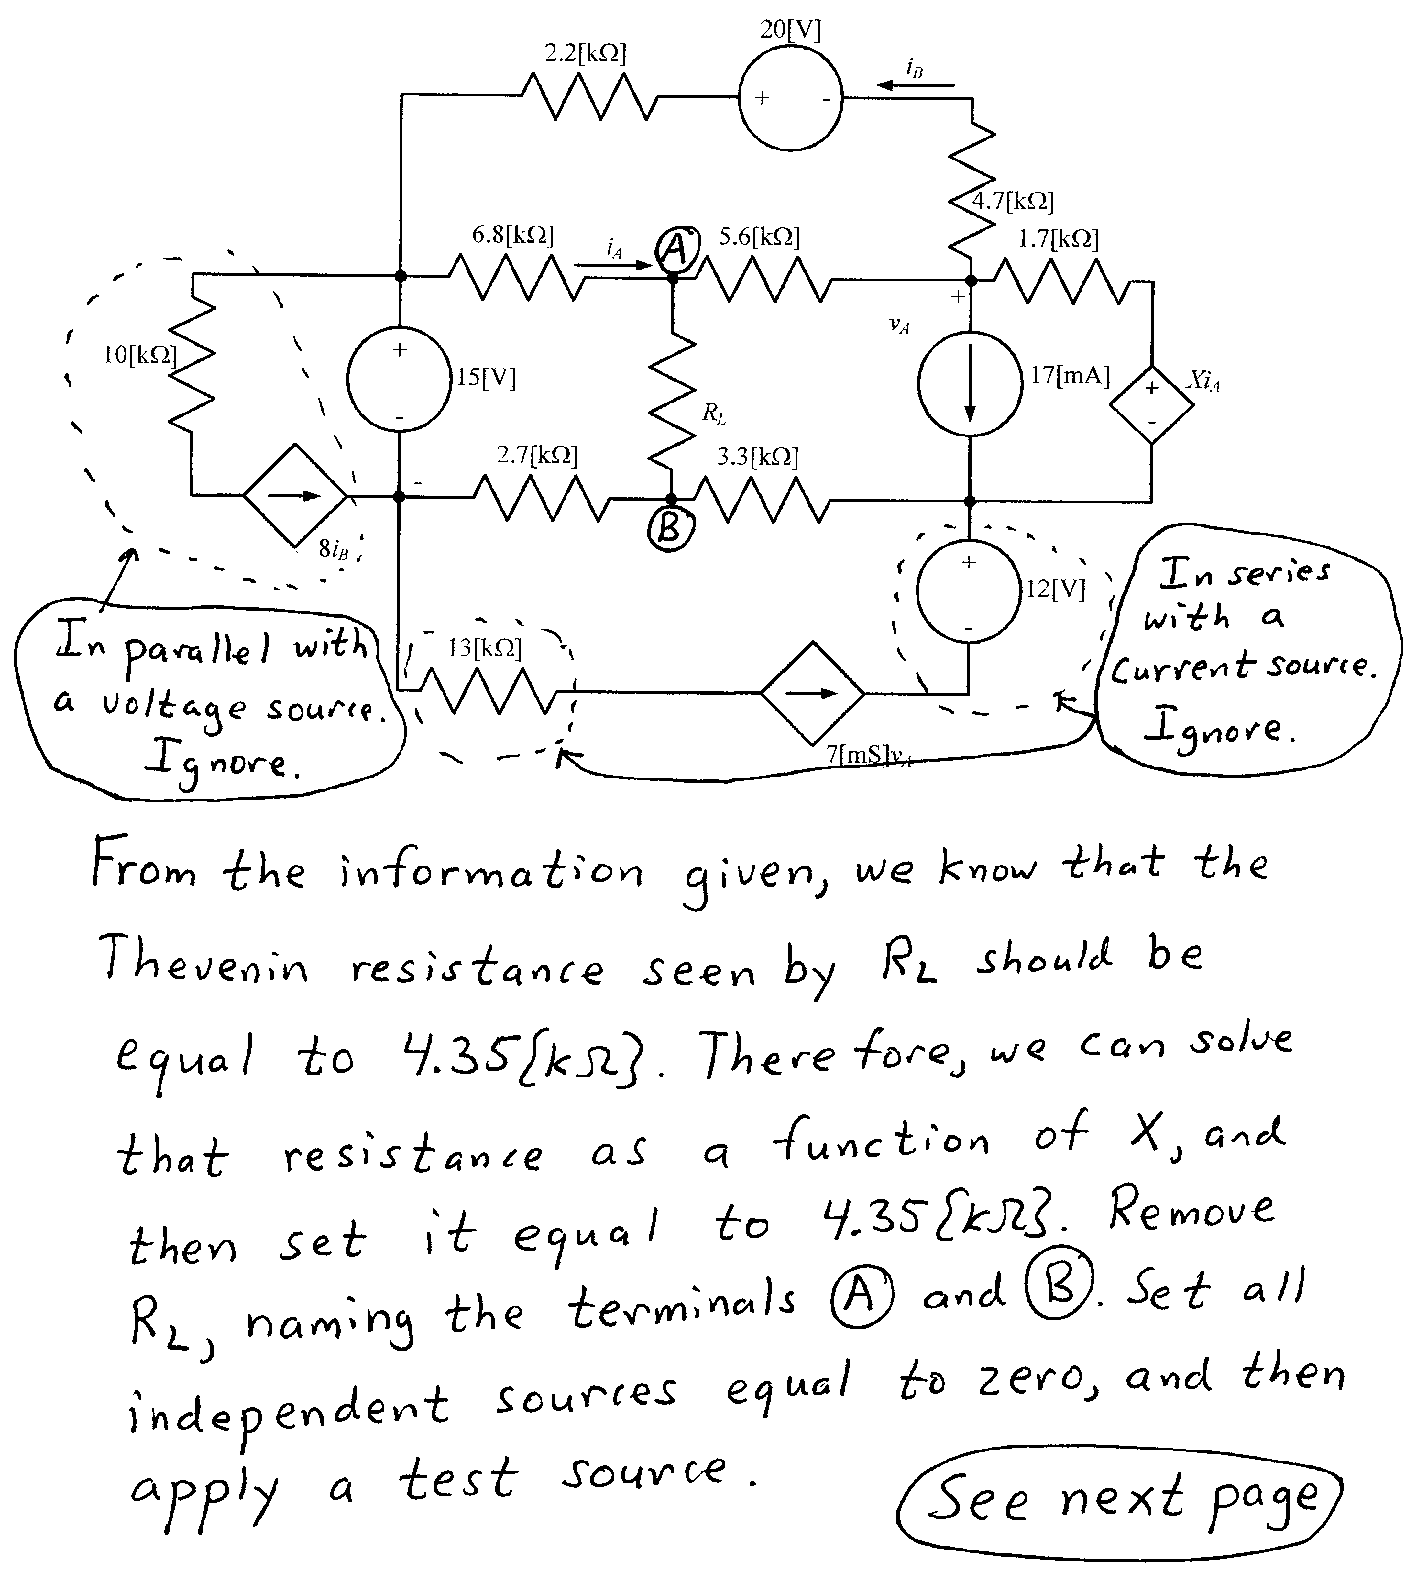 20[V]
2.2[kΩ]
iB
+ -
4.7[kΩ]
6.8[kΩ] iA A 5.6[kΩ] 1.7[kΩ]
+
vA
10[kΩ] + 15[V] 17[mA] + XiA
- RL -
2.7[kΩ] 3.3[kΩ]
-
B
8iB
+ 12[V]
-
13[kΩ]
7[mS]vA
In parallel with
a voltage source.
Ignore.
In series
with a
current source.
Ignore.
From the information given, we know that the
Thevenin resistance seen by RL should be
equal to 4.35{kΩ}. Therefore, we can solve
that resistance as a function of X, and
then set it equal to 4.35{kΩ}. Remove
RL, naming the terminals A and B. Set all
independent sources equal to zero, and then
apply a test source.
See next page